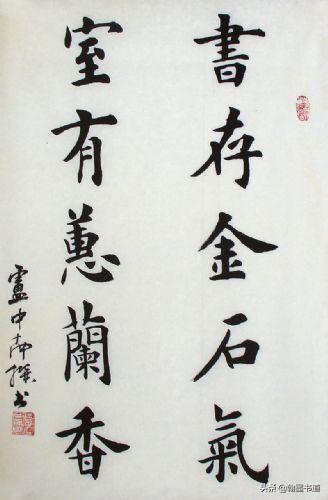 書存金石氣
室有蕙蘭香
盧中南撰书
头条 @翰墨书道